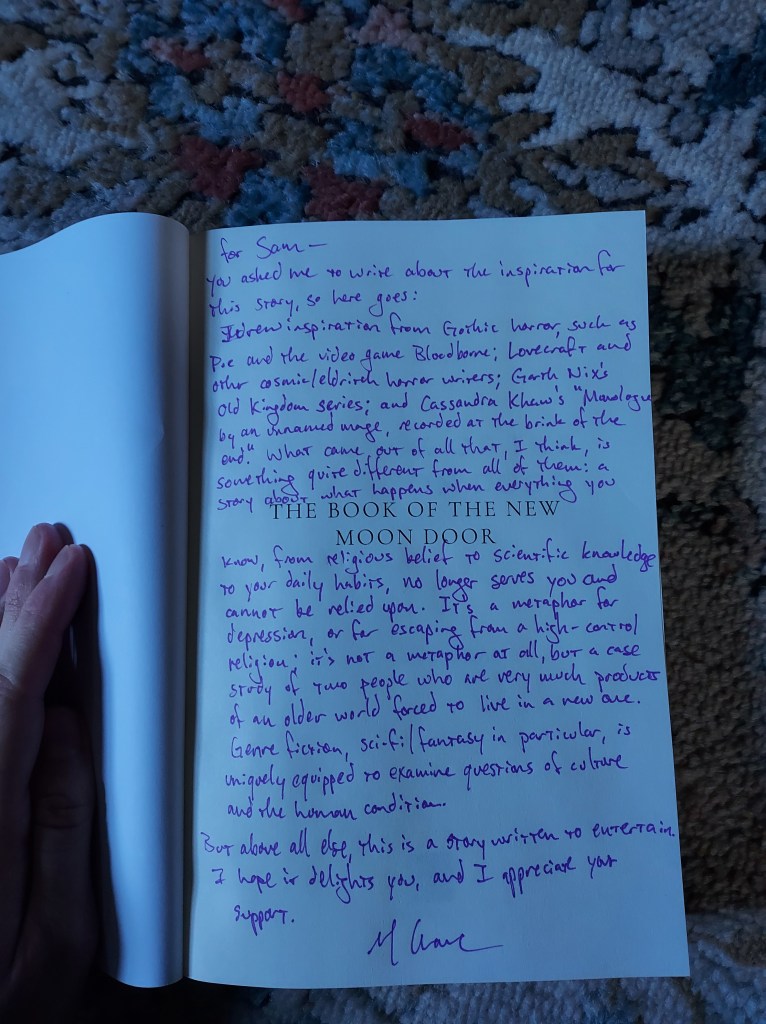 for Sam —
you asked me to write about the inspiration for
this story, so here goes:
I drew inspiration from Gothic horror, such as
Poe and the video game Bloodborne; Lovecraft and
other cosmic/eldritch horror writers; Garth Nix's
Old Kingdom series; and Cassandra Khaw's "Monologue
by an unnamed mage, recorded at the brink of the
end." What came out of all that, I think, is
something quite different from all of them: a
story about what happens when everything you
THE BOOK OF THE NEW
MOON DOOR
know, from religious belief to scientific knowledge
to your daily habits, no longer serves you and
cannot be relied upon. It's a metaphor for
depression, or for escaping from a high-control
religion; it's not a metaphor at all, but a case
study of two people who are very much products
of an older world forced to live in a new one.
Genre fiction, sci-fi/fantasy in particular, is
uniquely equipped to examine questions of culture
and the human condition.
But above all else, this is a story written to entertain.
I hope it delights you, and I appreciate your
support.
M